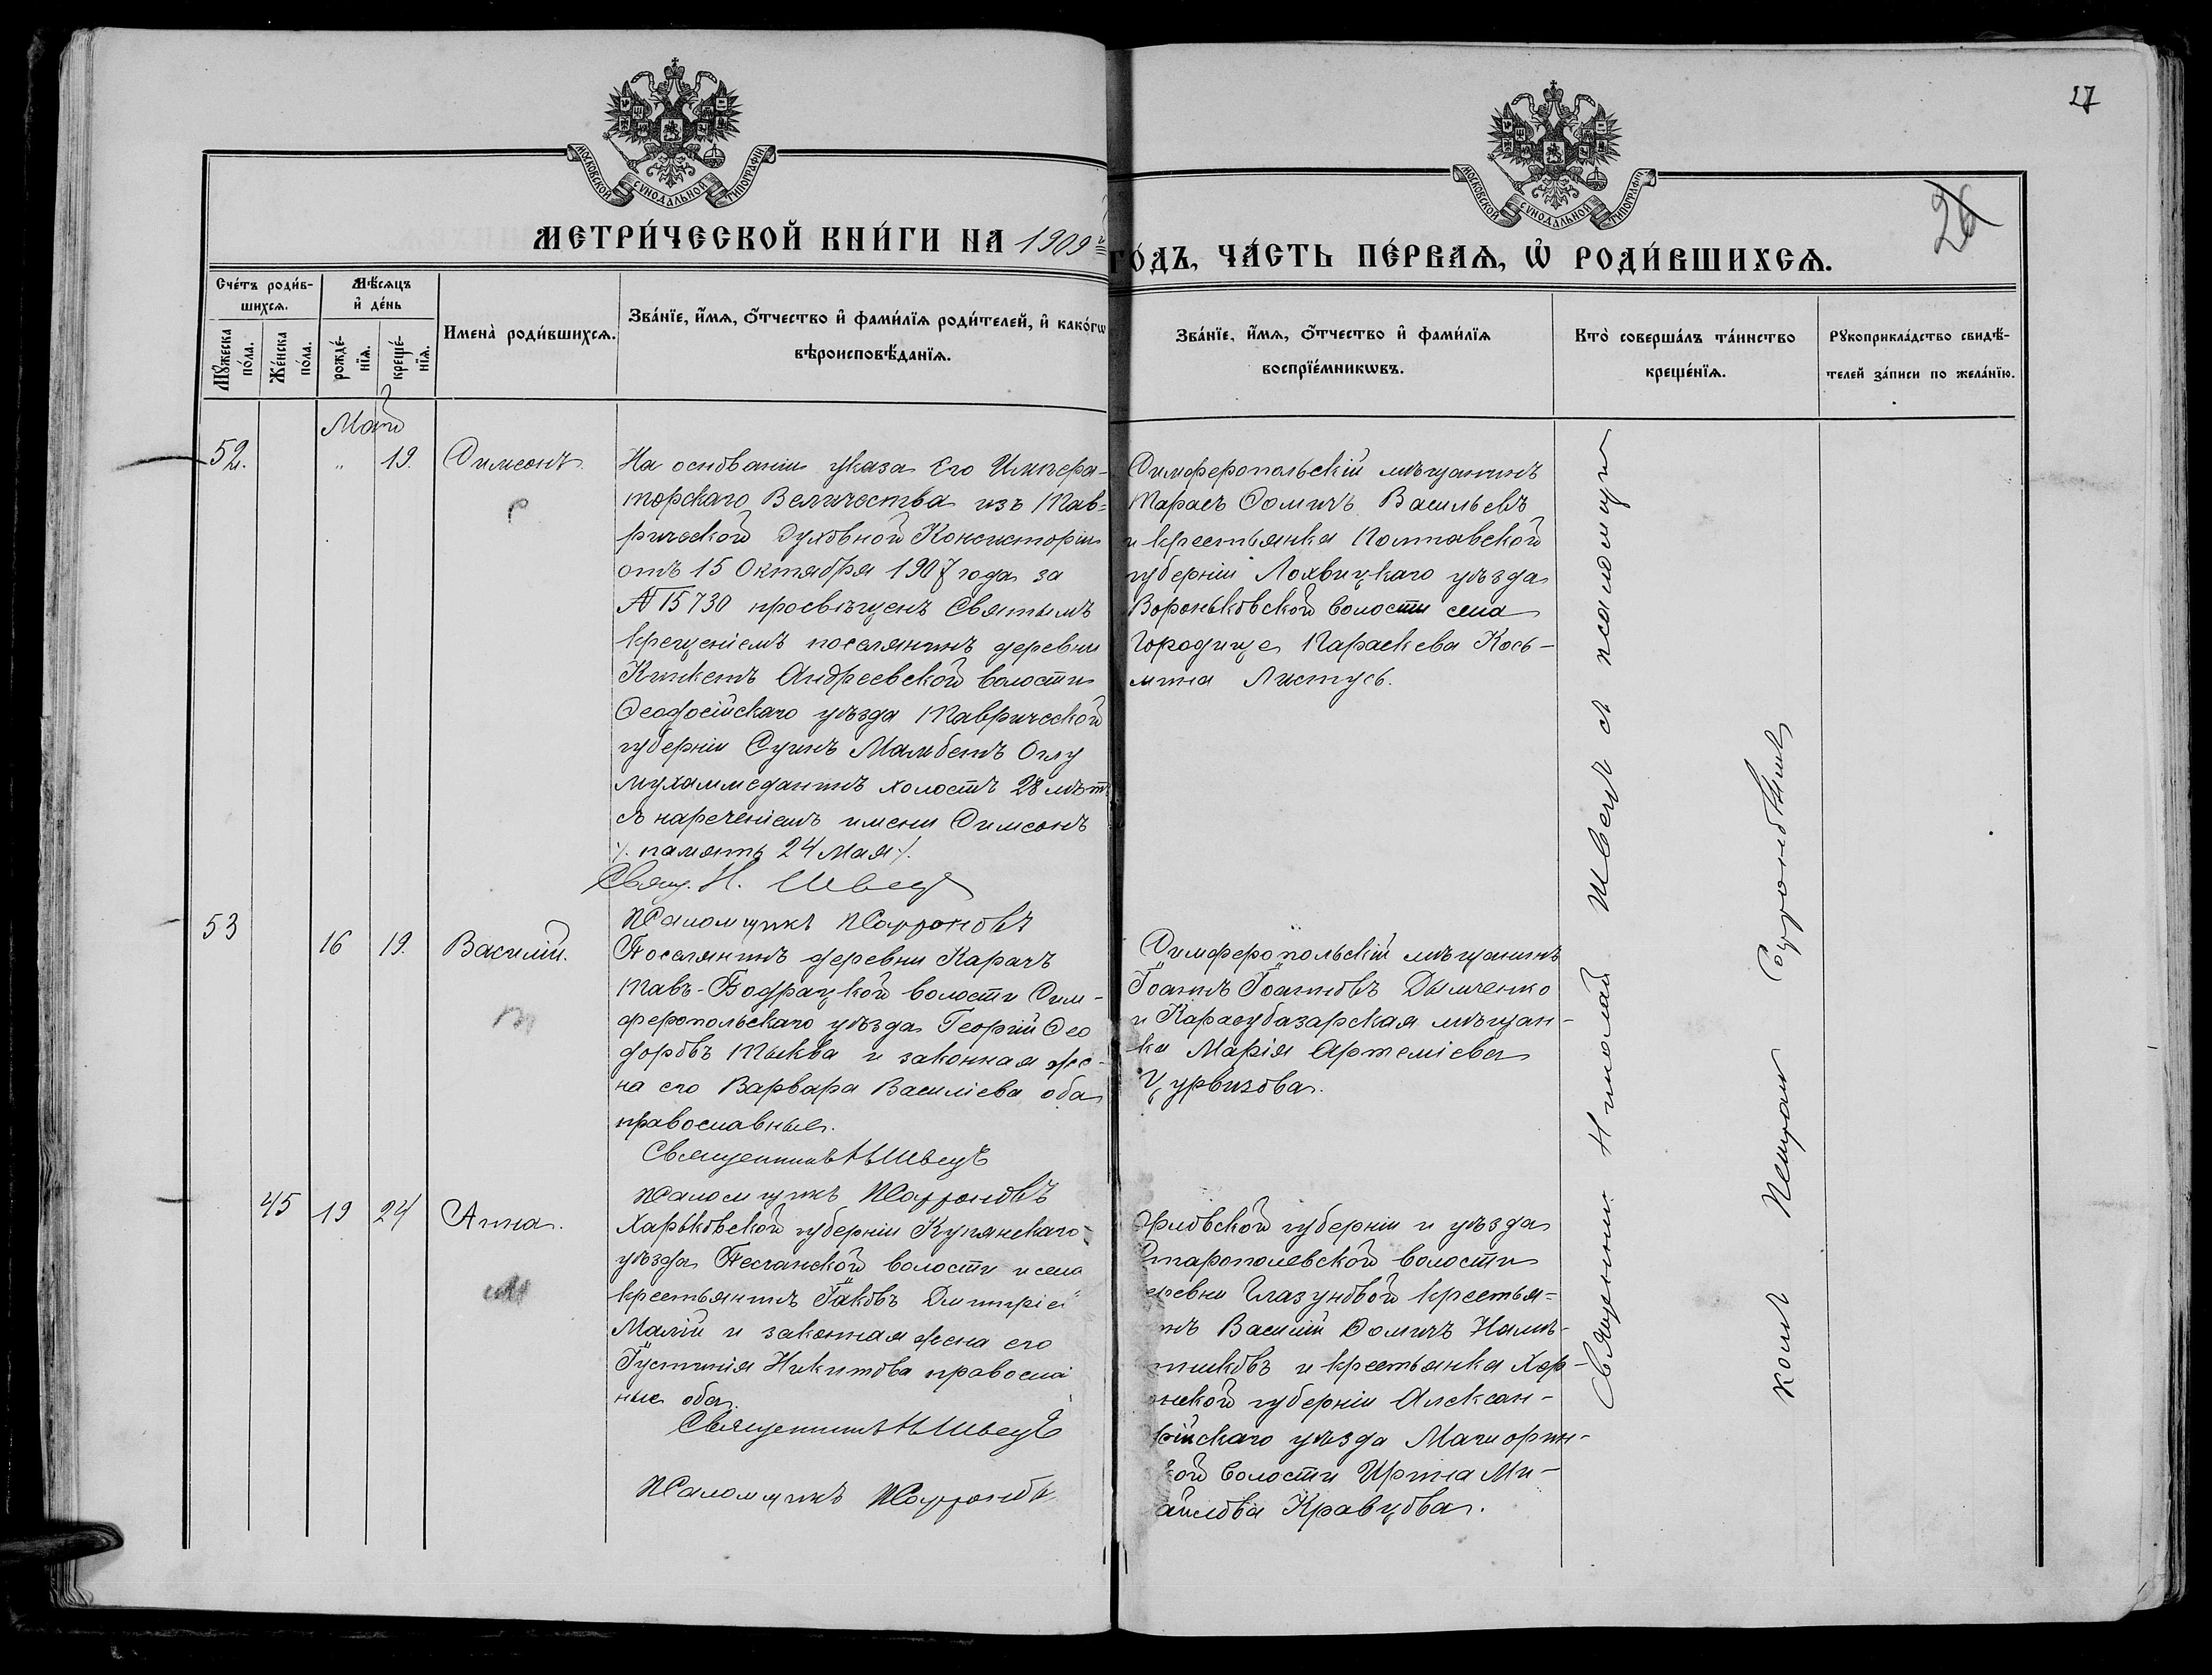 27
26
МОСКОВСКОЙ СУНОДАЛЬНОЙ ТИПОГРАФІИ
МОСКОВСКОЙ СУНОДАЛЬНОЙ ТИПОГРАФІИ
МЕТРИ́ЧЕСКОЙ КНИ́ГИ НА 1909 ГО́ДЪ, ЧА́СТЬ ПЕ́РВАѦ, Ѡ҆ РОДИ́ВШИХСѦ.
Сче́тъ роди́в-
шихсѧ.
Мꙋ́жеска по́ла.
Же́нска по́ла.
Мѣ́сѧцъ и҆ де́нь
рожде́-нїѧ.
креще́-нїѧ.
Имена̀ роди́вшихсѧ.
Зва́нїе, и҆́мѧ, ѻ҆́тчество и҆ фами́лїѧ роди́телей, и҆ како́гѡ
вѣроисповѣ́данїѧ.
Зва́нїе, и҆́мѧ, ѻ҆́тчество и҆ фами́лїѧ
воспрїе́мникѡвъ.
Кто̀ соверша́лъ та́инство
креще́нїѧ.
Рꙋкоприкла́дство свидѣ́-
телей за́писи по жела́нїю.
Май
52. " 19. Симеонъ.
На основаніи указа Его Импера-
торскаго Величества изъ Тав-
рической Духовной Консисторіи
отъ 15 Октября 1907 года за
№ 15730 просвѣщенъ Святымъ
крещеніемъ поселянинъ деревни
Андреевской волости
Ѳеодосійскаго уѣзда Таврической
губерніи Мамбетъ Оглу
мухаммеданинъ холостъ 28 лѣтъ
съ нареченіемъ имени Симеонъ
/. память 24 Мая /.
Свящ. Н. Швецъ
Псаломщикъ П Софроновъ
Симферопольскій мѣщанинъ
Тарасъ Ѳомичъ Васильевъ
и крестьянка Полтавской
губерніи Лохвицкаго уѣзда
Вороньковской волости села
Городище Параскева Кось-
мина Листусь.
53 16 19. Василій.
Поселянинъ деревни Карачъ
Тавъ-Бодрацкой волости Сим-
феропольскаго уѣзда Георгій Ѳео
доровъ Тыква и законная же-
на его Варвара Василіева оба
православные.
Священникъ Н Швецъ
Псаломщикъ П Софроновъ
Симферопольскій мѣщанинъ
Іоаннъ Іоанновъ Дымченко
и Карасубазарская мѣщан-
ка Марія Артеміева
Цурвизова.
45 19 24 Анна.
Харьковской губерніи Купянскаго
уѣзда Песчанской волости и села
крестьянинъ Іаковъ Димитріе
Малій и законная жена его
Іустинія Никитова правосла
ные оба.
Священникъ Н Швецъ
Псаломщикъ П Софроновъ
Орловской губерніи и уѣзда
Старополевской волости
деревни Глазуновой крестья-
нъ Василій Ѳомичъ Намѣ-
тниковъ и крестьянка Хер-
онской губерніи Алексан-
війскаго уѣзда
кой волости Ирина Ми-
аилова Кравцова.
Священникъ Николай Швецъ съ псаломщи
комъ Петромъ Софроновымъ